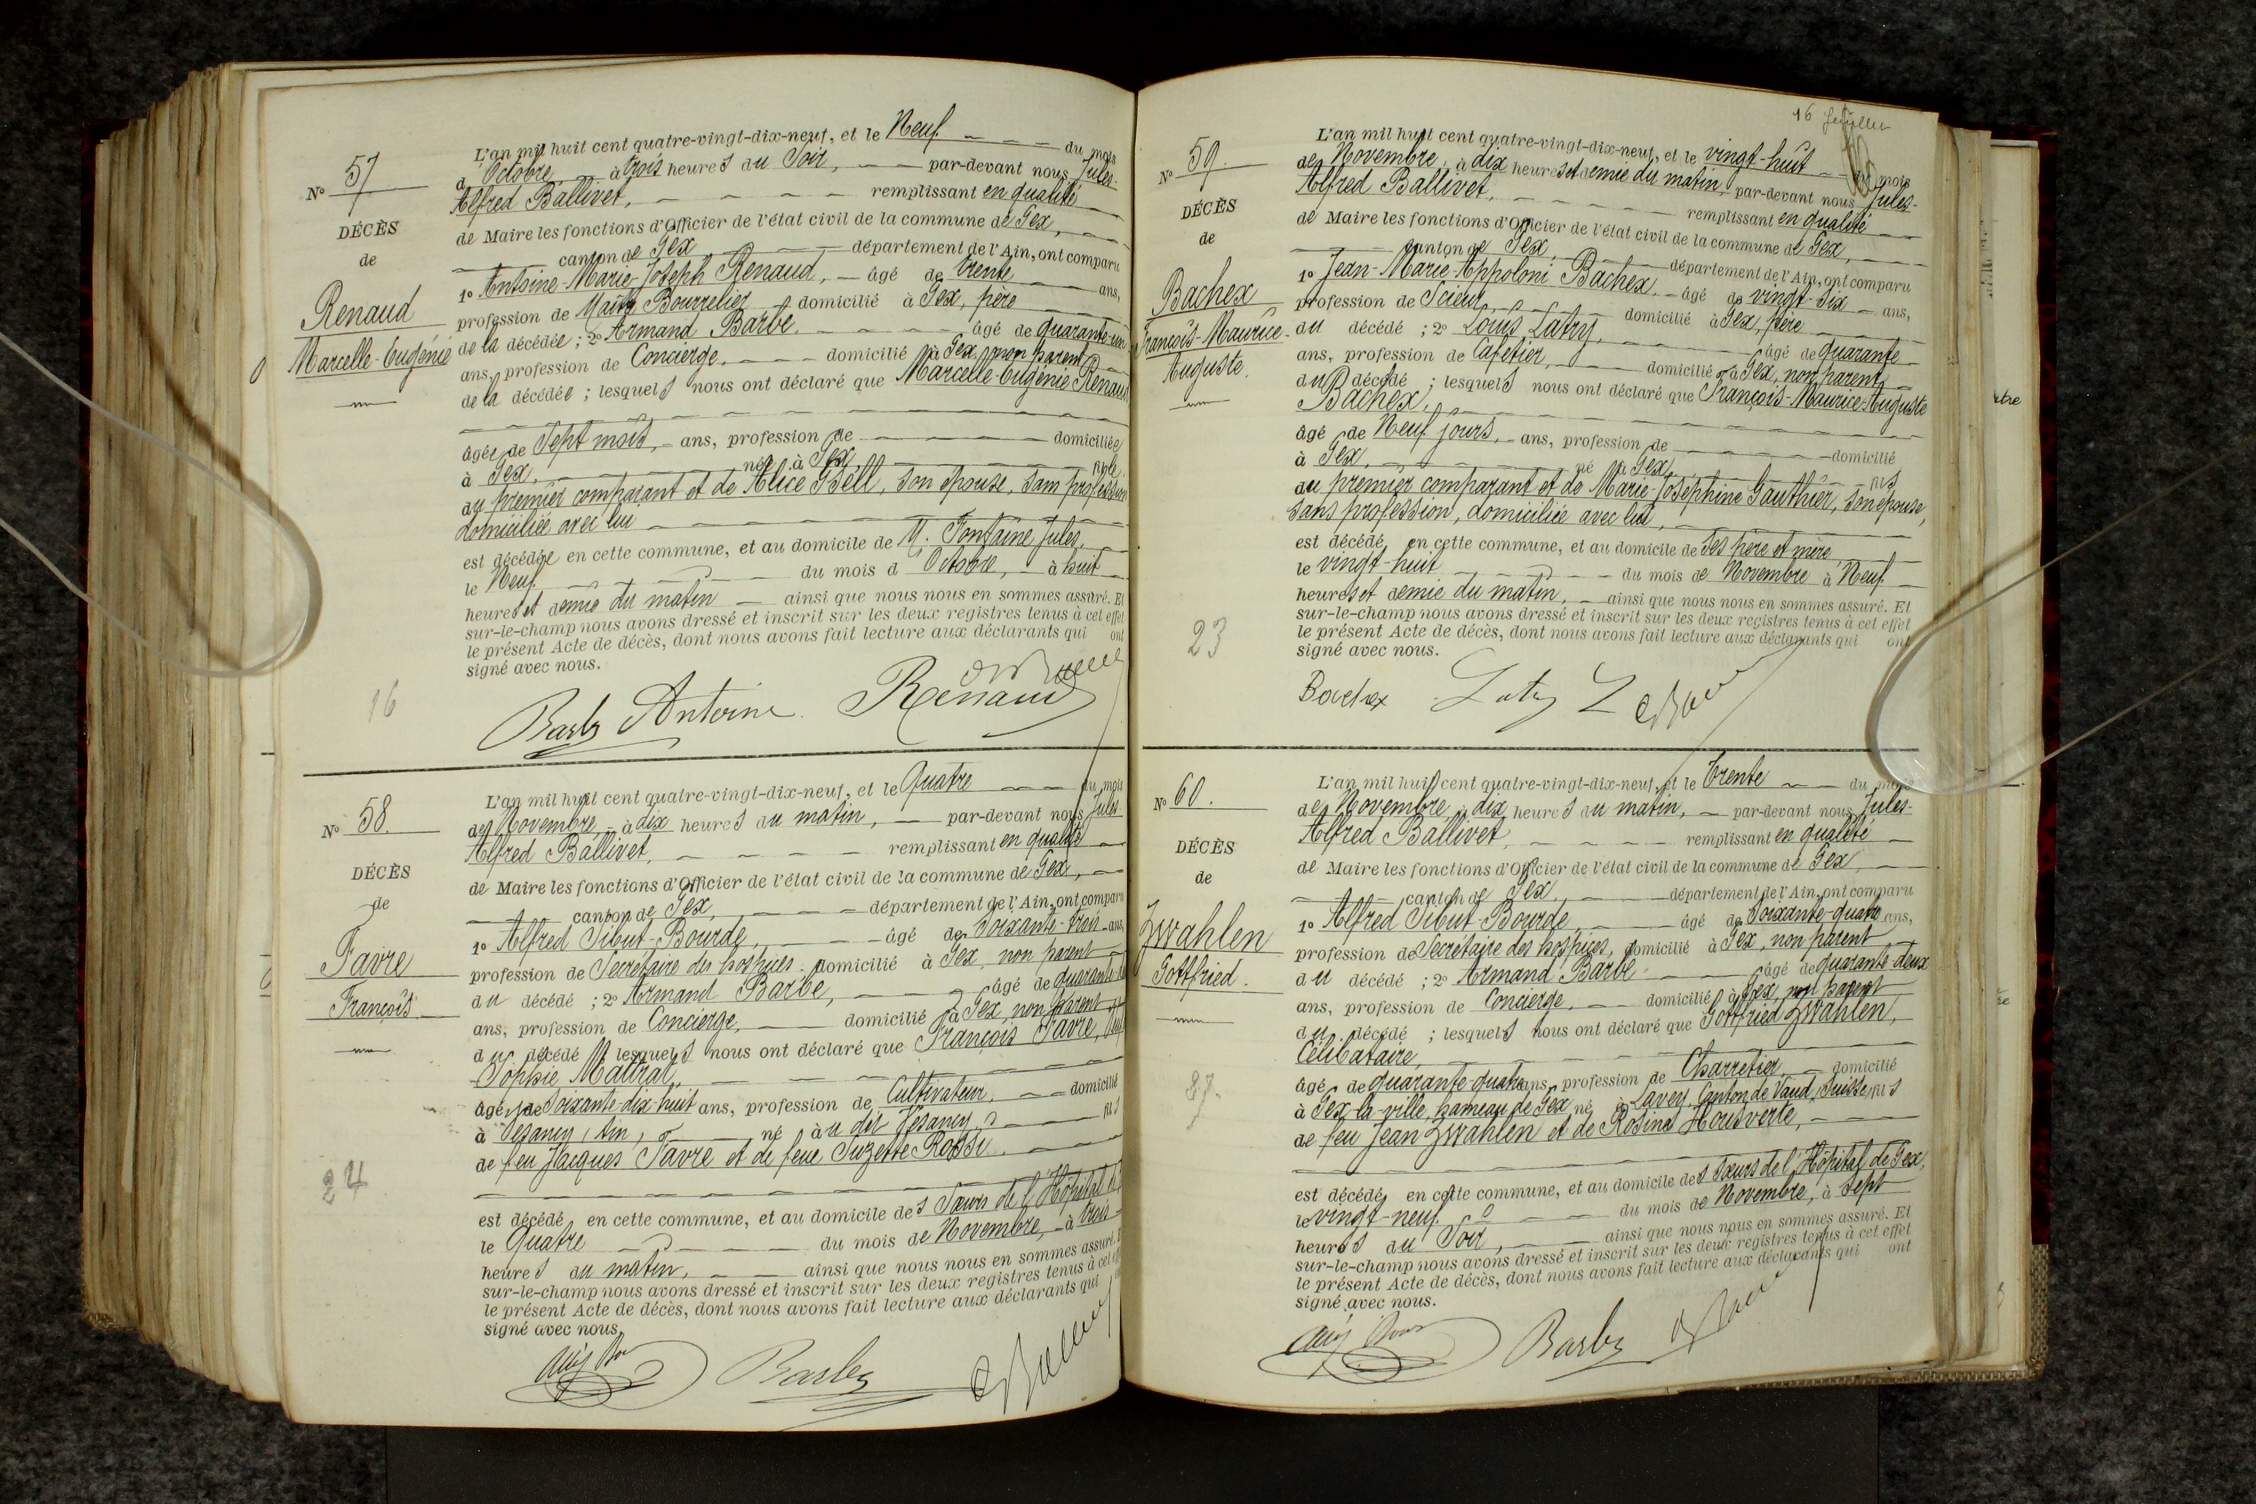 N° 57
DÉCÈS
de
Renaud
Marcelle-Eugénie
16
L'an mil huit cent quatre-vingt-dix-neuf, et le Neuf du mois
d'Octobre à trois heures du Soir, par-devant nous Jules-
Alfred Ballivet, remplissant en qualité
de Maire les fonctions d'Officier de l'état civil de la commune de Gex,
canton de Gex département de l'Ain, ont comparu
1° Antoine-Marie-Joseph Renaud, âgé de trente ans,
profession de Maître Bourrelier domicilié à Gex, père
de la décédée ; 2° Armand Barbe, âgé de quarante-un
ans, profession de Concierge, domicilié à Gex, non parent
de la décédée ; lesquels nous ont déclaré que Marcelle-Eugénie Renaud
âgée de Sept mois, ans, profession de domiciliée
à Gex, née à Gex, fille
du premier comparant et de Alice Gsell, son épouse, sans profession
domiciliée avec lui
est décédée en cette commune, et au domicile de M. Fontaine Jules,
le Neuf du mois d'Octobre, à huit
heures et demie du matin ainsi que nous nous en sommes assuré. Et
sur-le-champ nous avons dressé et inscrit sur les deux registres tenus à cet effet
le présent Acte de décès, dont nous avons fait lecture aux déclarants qui ont
signé avec nous.
Barbe Antoine Renaud
N° 58.
DÉCÈS
de
Favre
François.
24
L'an mil huit cent quatre-vingt-dix-neuf, et le Quatre du mois
de Novembre, à dix heures du matin, par-devant nous Jules-
Alfred Ballivet, remplissant en qualité
de Maire les fonctions d'Officier de l'état civil de la commune de Gex,
canton de Gex, département de l'Ain, ont comparu
1° Alfred Sibut-Bourde, âgé de Soixante-trois ans,
profession de Secrétaire des hospices domicilié à Gex, non parent
du décédé ; 2° Armand Barbe, âgé de quarante
ans, profession de Concierge, domicilié à Gex, non parent
du décédé lesquels nous ont déclaré que François Favre,
Sophie Maurat,
âgé de Soixante-dix-huit ans, profession de Cultivateur, domicilié
à Vesancy, Ain, né à u dit Vesancy, fils
de feu Jacques Favre et de feue Suzette Rossi
est décédé en cette commune, et au domicile des Sœurs de l'Hôpital
le Quatre du mois de Novembre, à trois
heures du matin, ainsi que nous nous en sommes assuré.
sur-le-champ nous avons dressé et inscrit sur les deux registres tenus à cet
le présent Acte de décès, dont nous avons fait lecture aux déclarants qui
signé avec nous,
Barbe
16 feuillet
N° 59.
DÉCÈS
de
Bachex
François-Maurice-
Auguste.
23
L'an mil huit cent quatre-vingt-dix-neuf, et le vingt-huit du mois
de Novembre, à dix heures et demie du matin, par-devant nous Jules-
Alfred Ballivet, remplissant en qualité
de Maire les fonctions d'Officier de l'état civil de la commune de Gex,
canton de Gex, département de l'Ain, ont comparu
1° Jean-Marie-Appoloni Bachex, âgé de vingt-six ans,
profession de Scieur, domicilié à Gex, père
du décédé ; 2° Louis Latry, âgé de quarante
ans, profession de Cafetier, domicilié à Gex, non parent
du décédé ; lesquels nous ont déclaré que François-Maurice-Auguste
Bachex,
âgé de Neuf jours, ans, profession de domicilié
à Gex, né à Gex, fils
du premier comparant et de Marie-Joséphine Gauthier, son épouse,
sans profession, domiciliée avec lui,
est décédé en cette commune, et au domicile de ses père et mère
le vingt-huit du mois de Novembre à Neuf
heures et demie du matin, ainsi que nous nous en sommes assuré. Et
sur-le-champ nous avons dressé et inscrit sur les deux registres tenus à cet effet
le présent Acte de décès, dont nous avons fait lecture aux déclarants qui ont
signé avec nous.
Bachex Latry L
N° 60.
DÉCÈS
de
Zwahlen
Gottfried.
27.
L'an mil huit cent quatre-vingt-dix-neuf, et le trente du mois
de Novembre, à dix heures du matin, par-devant nous Jules-
Alfred Ballivet, remplissant en qualité
de Maire les fonctions d'Officier de l'état civil de la commune de Gex,
canton de Gex, département de l'Ain, ont comparu
1° Alfred Sibut-Bourde, âgé de Soixante-quatre ans,
profession de Secrétaire des hospices, domicilié à Gex, non parent
du décédé ; 2° Armand Barbe âgé de quarante-deux
ans, profession de Concierge, domicilié à Gex, non parent
du décédé ; lesquels nous ont déclaré que Gottfried Zwahlen,
Célibataire,
âgé de quarante-quatre ans, profession de Charretier, domicilié
à Gex-la-ville, hameau de Gex né à Lavey, Canton de Vaud, Suisse, fils
de feu Jean Zwahlen et de Rosina Housverte,
est décédé en cette commune, et au domicile des Sœurs de l'Hôpital de Gex,
le vingt-neuf du mois de Novembre, à Sept
heures du Soir, ainsi que nous nous en sommes assuré. Et
sur-le-champ nous avons dressé et inscrit sur les deux registres tenus à cet effet
le présent Acte de décès, dont nous avons fait lecture aux déclarants qui ont
signé avec nous.
Barbe